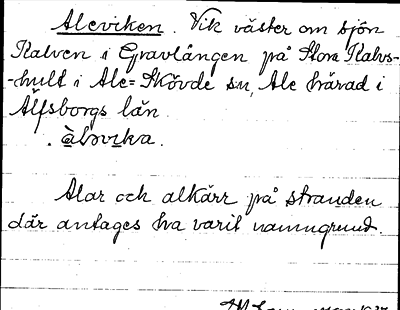 Aleviken. Vik väster om sjön
Kalven i Gravlången på Stora Kalvs-
-hult i Ale-Skövde sn, Ale härad i
Älfsborgs län
àləvika.
Alar och alkärr på stranden
där antages ha varit namngrund.